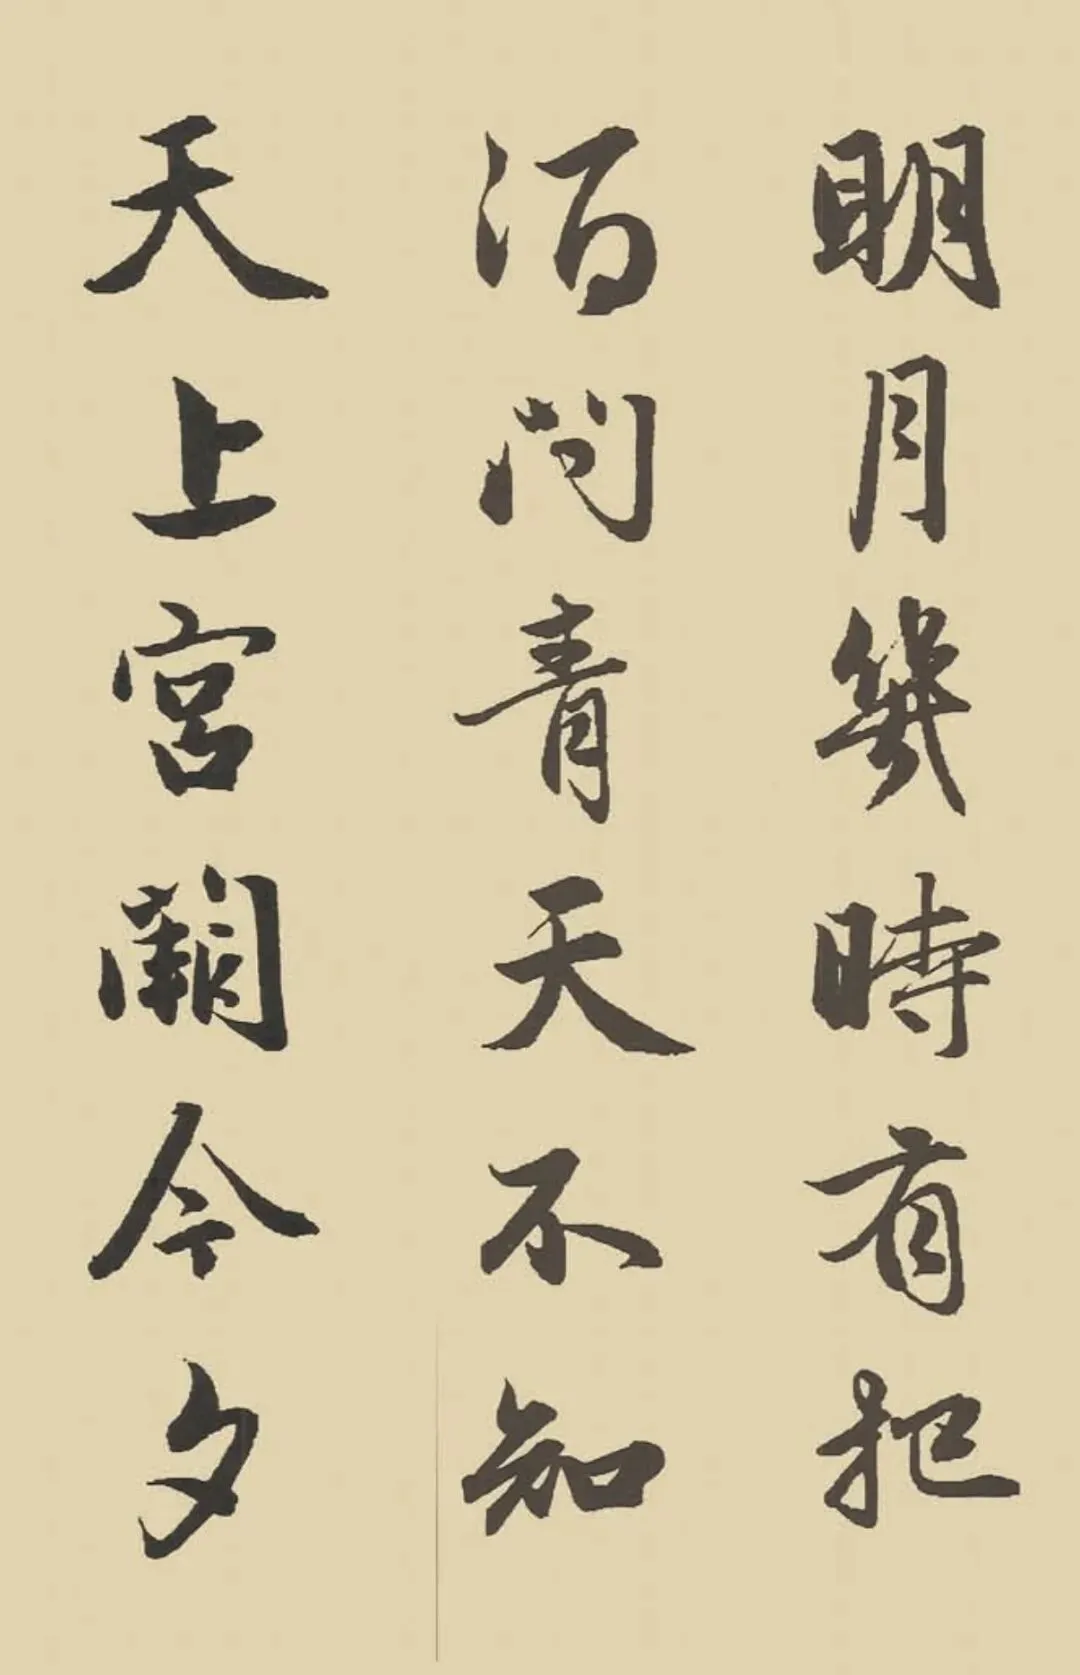 明月幾時有把
酒問青天不知
天上宮闕今夕